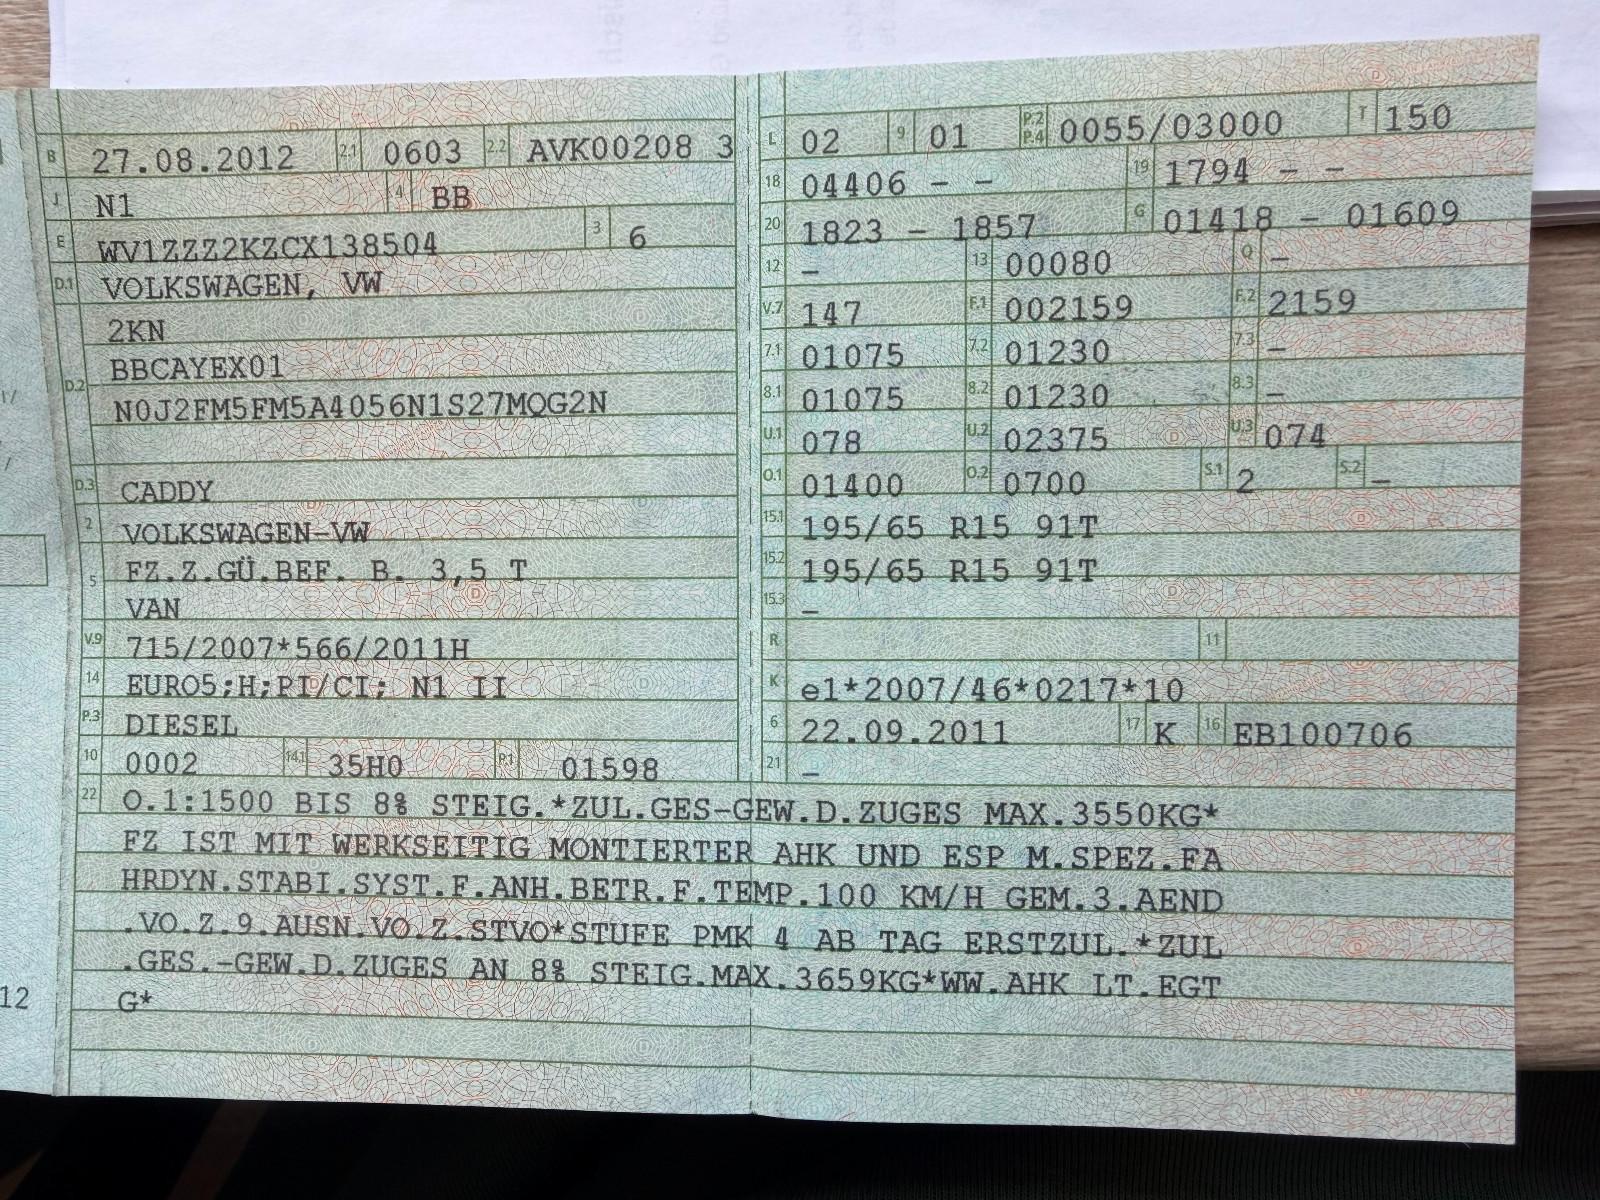 B 27.08.2012 2.1 0603 2.2 AVK00208 3
J N1 4 BB
E WV1ZZZ2KZCX138504 3 6
D.1 VOLKSWAGEN, VW
D.2 2KN
BBCAYEX01
N0J2FM5FM5A4056N1S27MQG2N
D.3 CADDY
2 VOLKSWAGEN-VW
5 FZ.Z.GÜ.BEF. B. 3,5 T
VAN
V.9 715/2007*566/2011H
14 EURO5;H;PI/CI; N1 II
P.3 DIESEL
10 0002 14.1 35H0 P.1 01598
L 02 9 01 P.2 P.4 0055/03000 T 150
18 04406 - - 19 1794 - -
20 1823 - 1857 G 01418 - 01609
12 - 13 00080 Q -
V.7 147 F.1 002159 F.2 2159
7.1 01075 7.2 01230 7.3 -
8.1 01075 8.2 01230 8.3 -
U.1 078 U.2 02375 U.3 074
O.1 01400 O.2 0700 S.1 2 S.2 -
15.1 195/65 R15 91T
15.2 195/65 R15 91T
15.3 -
R 11
K e1*2007/46*0217*10
6 22.09.2011 17 K 16 EB100706
21 -
22 O.1:1500 BIS 8% STEIG.*ZUL.GES-GEW.D.ZUGES MAX.3550KG*
FZ IST MIT WERKSEITIG MONTIERTER AHK UND ESP M.SPEZ.FA
HRDYN.STABI.SYST.F.ANH.BETR.F.TEMP.100 KM/H GEM.3.AEND
.VO.Z.9.AUSN.VO.Z.STVO*STUFE PMK 4 AB TAG ERSTZUL.*ZUL
.GES.-GEW.D.ZUGES AN 8% STEIG.MAX.3659KG*WW.AHK LT.EGT
G*
12